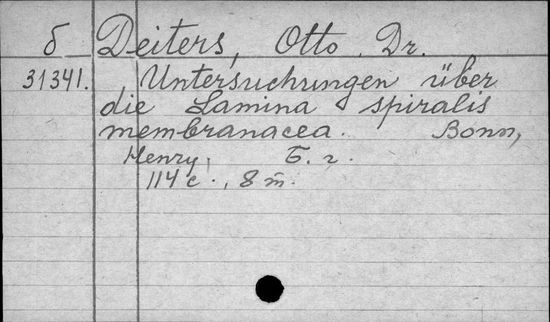 б Deiters, Otto, Dr.
31341. Untersuchungen über
die Lamina spiralis
membranacea. Bonn,
Henry, Б. г.
114 с., 8 т.